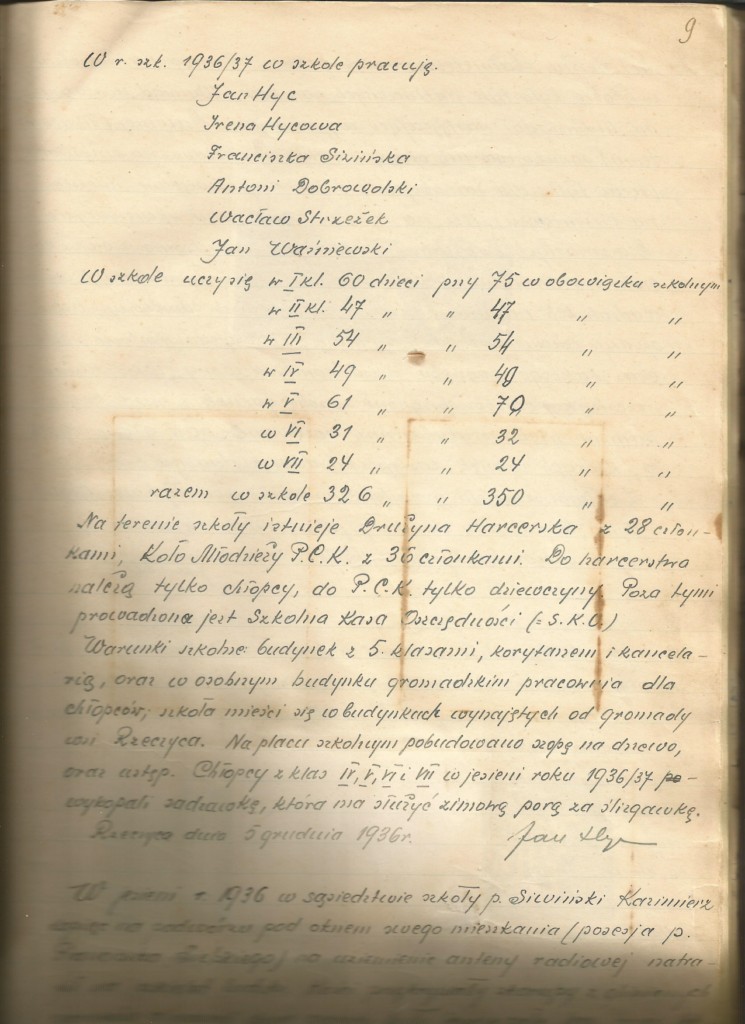 9
W r. szk. 1936/37 w szkole pracują.
Jan Hyc
Irena Hycowa
Franciszka Siwińska
Antoni Dobrowolski
Wacław Strzeżek
Jan Waśniewski
W szkole uczy się w I kl. 60 dzieci przy 75 w obowiązku szkolnym
w II kl. 47 " " 47 " "
w III 54 " " 54 " "
w IV 49 " " 49 " "
w V 61 " " 70 " "
w VI 31 " " 32 " "
w VII 24 " " 24 " "
razem w szkole 326 " " 350 " "
Na terenie szkoły istnieje Drużyna Harcerska z 28 człon-
kami, Koło Młodzieży P.C.K. z 36 członkami. Do harcerstwa
należą tylko chłopcy, do P.C.K. tylko dziewczyny. Poza tymi
prowadzona jest Szkolna Kasa Oszczędności (= S.K.O.)
Warunki szkolne: budynek z 5. klasami, korytarzem i kancela-
rią, oraz w osobnym budynku gromadzkim pracownia dla
chłopców; szkoła mieści się w budynkach wynajętych od gromady
wsi Rzeczyca. Na placu szkolnym pobudowano szopę na drzewo,
oraz ustęp. Chłopcy z klas IV, V, VI i VII w jesieni roku 1936/37 po-
wykopali sadzawkę, która ma służyć zimową porą za ślizgawkę.
Rzeczyca dnia 5 grudnia 1936 r. Jan Hyc
W jesieni r. 1936 w sąsiedztwie szkoły p. Siwiński Kazimierz
na pod oknem swego mieszkania (posesja p.
na uziemienie anteny radiowej natra-